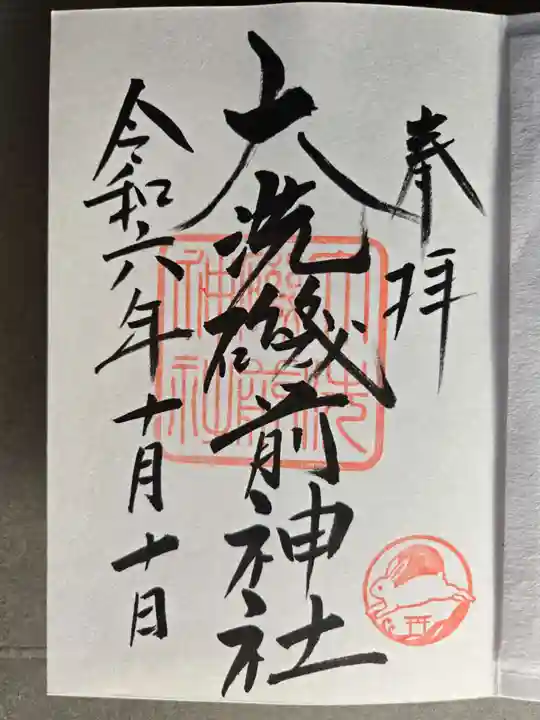 奉拝
大洗磯前神社
大洗磯前神社
令和六年十月十日